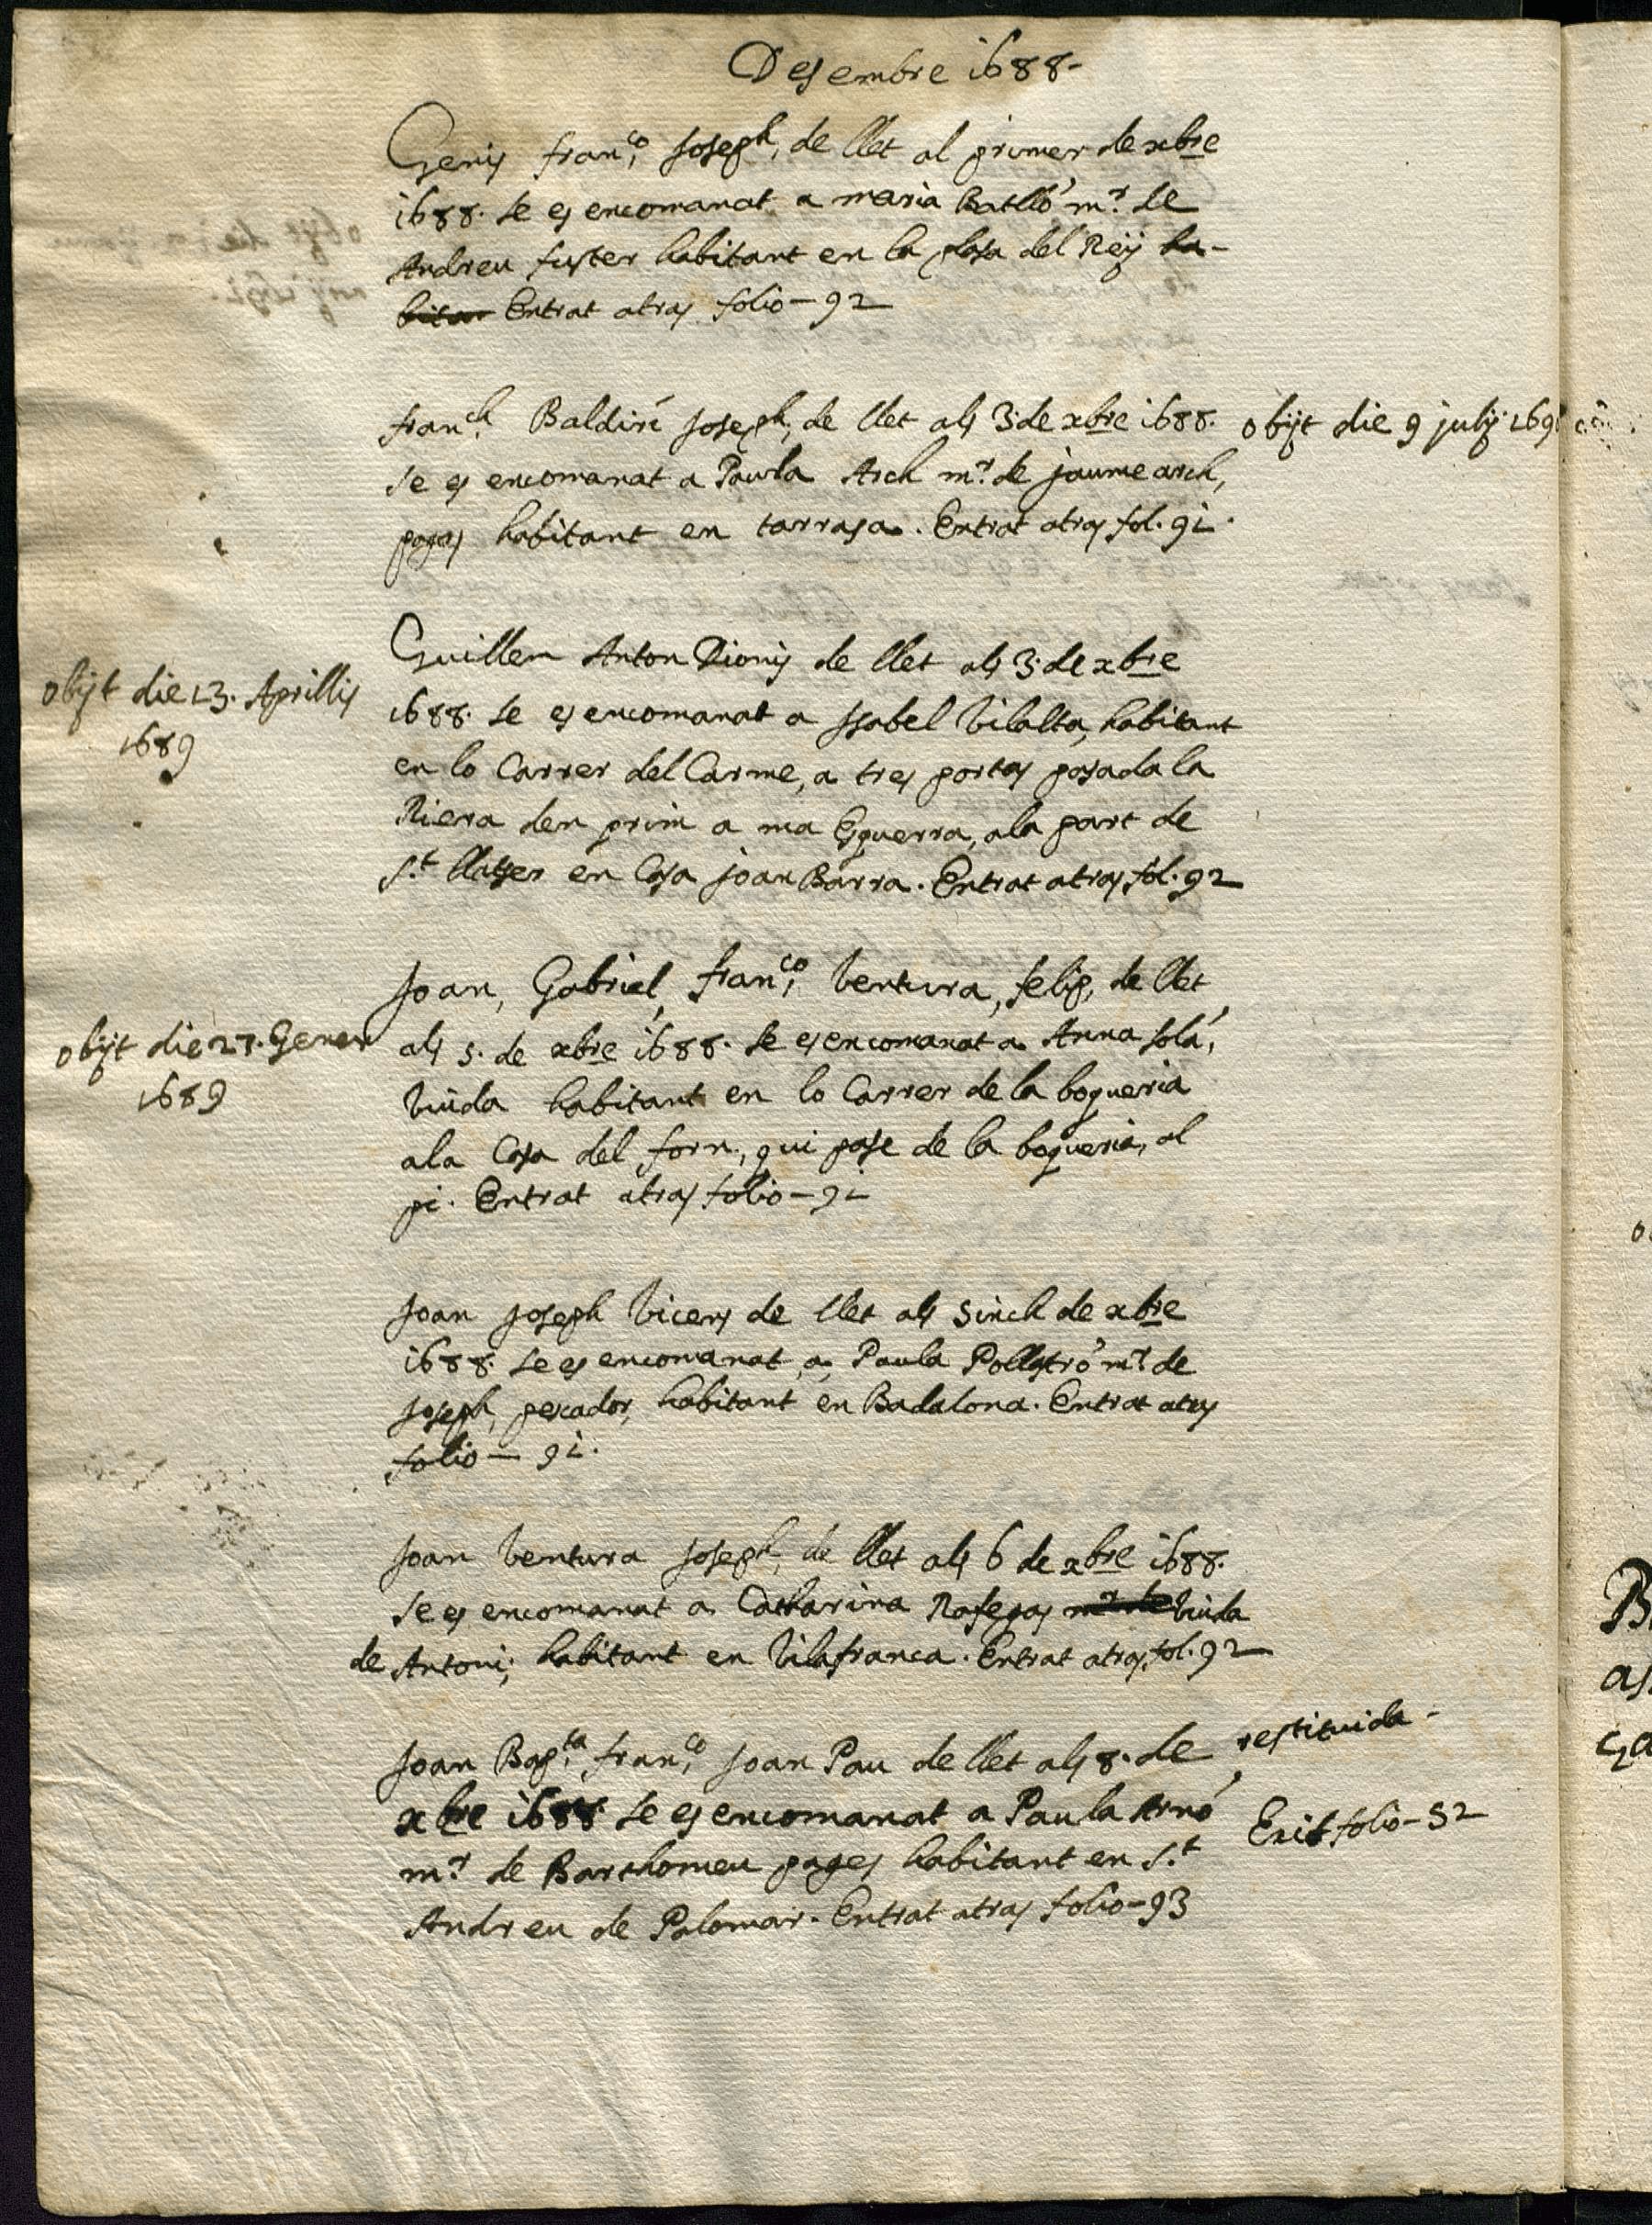 Desembre 1688-
Genis fran.co Joseph, de llet al primer de xbre
1688. se es encomanat a maria Batlló m.r de
Andreu fuster habitant en la plasa del Reÿ ha-
bitan Entrat atras folio - 92
fran.ch Baldiri Joseph, de llet als 3. de xbre 1688.
obijt die 9 julÿ 169
se es encomanat a Paula Arch m.r de jaume arch,
pages habitant en tarrasa. Entrat atras fol. 91.
Guillem Anton Dionis de llet als 3. de xbre
obijt die 13. Aprillis
1689
1688. se es encomanat a Isabel Vilalta, habitant
en lo Carrer del Carme, a tres portas pasada la
Riera den prim a ma Esquerra, ala part de
S.t llatser en Casa joan Barra. Entrat atras fol. 92
Joan, Gabriel, fran.co Ventura, felip, de llet
obijt die 27. Gener
1689
als 5. de xbre 1688. se es encomanat a Anna solá,
Viuda habitant en lo Carrer de la boqueria
ala Casa del forn, qui pase de la boqueria, al
pi. Entrat atras folio - 91
Joan Joseph Vicens de llet als Sinch de xbre
1688. se es encomanat a Paula Pollastró m.r de
Joseph, pescador, habitant en Badalona. Entrat atras
folio - 91.
Joan Ventura Joseph, de llet als 6 de xbre 1688.
se es encomanat a Catharina Rafegas m.r de Viuda
de Antoni; habitant en Vilafranca. Entrat atras, fol. 92
Joan Bap.ta fran.co Joan Pau de llet als 8. de
restituida -
xbre 1688 se es encomanat a Paula Arnó
Exit folio - 52
m.r de Barthomeu pages habitant en S.t
Andreu de Palomar. Entrat atras folio - 93